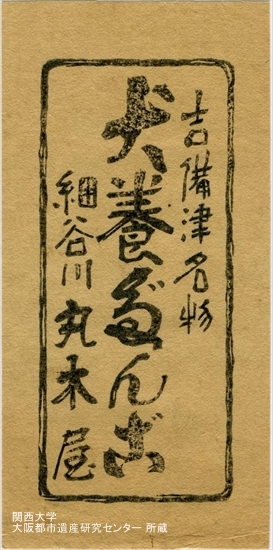 吉備津名物
犬養だんご
細谷川丸木屋
関西大学
大阪都市遺産研究センター 所蔵